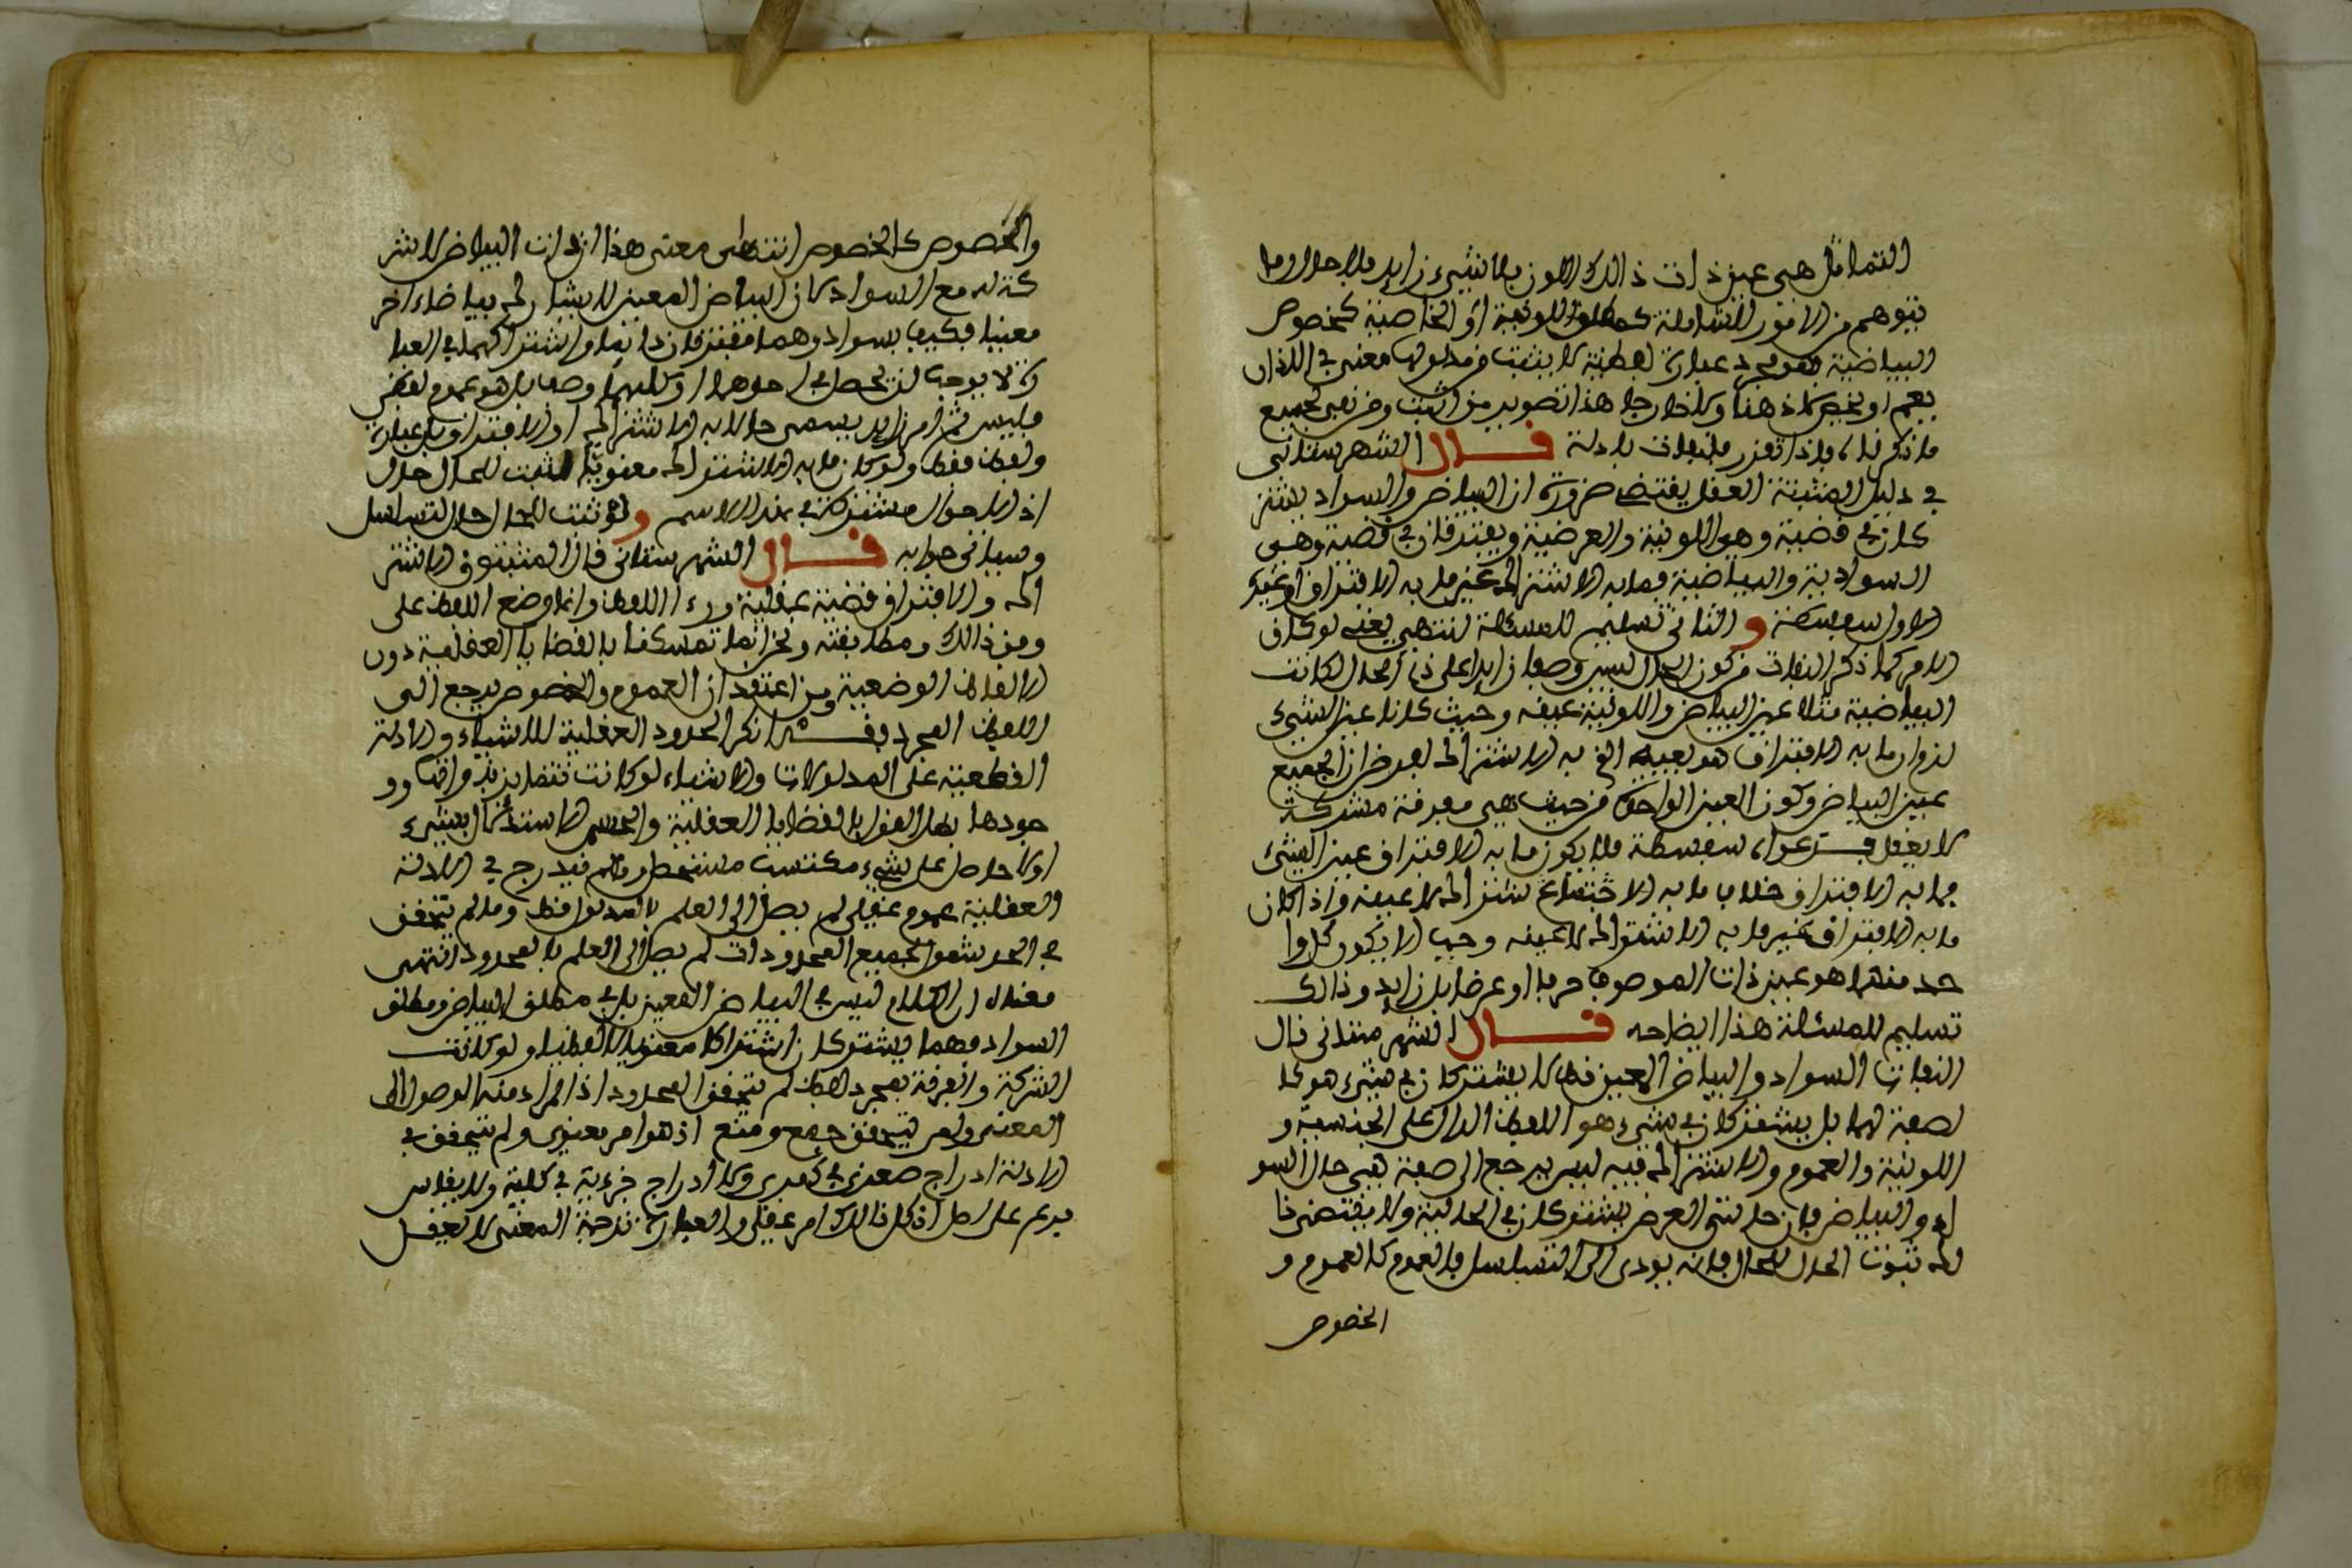 التماثل هي عين ذات ذلك اللون بلا شيء زايد بلا حال وما
يتوهم من الامور الشاملة كمطلق اللونية او الخاصية كخصوص
البياضية فهو مجرد عبارة لفظية لا يثبت من مدلولها معنى في اللذان
يعم او يخص لا ذهنا ولا خارجا هذا تصوير من اثبت ومن نفى لجميع
ما ذكرناه واذا تقرر فلنات بادلة قال الشهرستاني
في دليل المثبتة العقل يقتضي ضرورة ان البياض والسواد يشتر
كان في قضية وهي اللونية والعرضية ويفترقان في قضية وهي
السوادية والبياضية فما به الاشتراك غير ما به الافتراق او غيره
الاول سفسطة و الثاني تسليم للمسئلة انتهى يعني لو كان
الامر كما ذكر النفات من كون الحال ليس وصفا زايدا على ذي الحال لكانت
البياضية مثلا عين البياض واللونية عينه وحيث كانا عين الشيء
لزم ان ما به الافتراق هو بعينه الذي به الاشتراك لفرض ان الجميع
عين البياض وكون العين الواحدة من حيث هي مفرقة مشركة
لا يعقل فدعواه سفسطة فلا يكون ما به الافتراق عين الشيء
فما به الافتراق خلاف ما به الاشتراك لا عينه واذا كان
ما به الافتراق غير ما به الاشتراك لا عينه وجب الا يكون كل وا
حد منهما هو عين ذات الموصوف جرما او عرضا بل زايد وذلك
تسليم للمسئلة هذا ايضاحه قال الشهرستاني قال
النفات السواد والبياض المعين قط لا يشتركان في شيء هو كا
لصفة لهما بل يشتركان في شيء هو اللفظ الدال على الجنسية و
اللونية والعموم والاشتراك فيه ليس يرجع الى صفة هي حال السو
اد والبياض فان حالتي العرض يشتركان في الحالية ولا يقتضي ذا
لك ثبوت الحال للحال فانه يودي الى التسلسل فالعموم كالعموم و
الخصوص
والخصوص كالخصوص انتهى معنى هذا ان ذات البياض لا شر
كة له مع السواد كان البياض المعين لا يشارك بياضا اخر
معينا فكيف بسواد وهما مفترقان ذاتا واشتراكهما في العبا
رة لا يوجب لن يحصل في احدهما او كليهما وصف بل هو عموم لفظي
فليس ثم امر زايد يسمى حالا به الاشتراك او الافتراق بل عبارة
ولفظ فقط ولو كان ما به الاشتراك معنويا لثبت للحال حال
اذ الاحوال مشتركة في هذا الاسم ولو ثبت للحال حال لتسلسل
وسياتي جوابه قال الشهرستاني قال المثبتون الاشتر
اك والافتراق قضية عقلية وراء اللفظ وانما وضع اللفظ على
وفق ذلك ومطابقته ونحن انما تمسكنا بالقضايا العقلية دون
الالفاظ الوضعية ومن اعتقد ان العموم والخصوص يرجع الى
اللفظ المجرد فقد انكر الحدود العقلية للاشياء والادلة
القطعية على المدلولات والاشياء لو كانت تتمايز بذواتها وو
جودها بطل القول بالقضايا العقلية وانحسم الاستدلال بشيء
اولا حاصل على شيء مكتسب متحصل وما لم يندرج في الادلة
العقلية عموم عقلي لم يصل الى العلم بالمدلول قط وما لم يتحقق
في الحد شمول لجميع المحدودات لم يصل الى العلم بالمحدود انتهى
معناه ان الكلام ليس في البياض المعين بل في مطلق البياض ومطلق
السواد فهما يشتركان اشتراكا معنويا لا لفظيا ولو كانت
الشركة والفرقة بمجرد لفظ لم يتحقق المحدود اذ المراد منه الوصول الى
المعنى ولم يتحقق جمع ومنع اذ هو امر معنوي ولم يتحقق في
الادلة ادراج صغرى في كبرى ولا ادراج جزءية في كلية ولا يقاس
فرع على اصل اذ كل ذلك امر عقلي والعبارة ترجمة المعنى لا لعقل